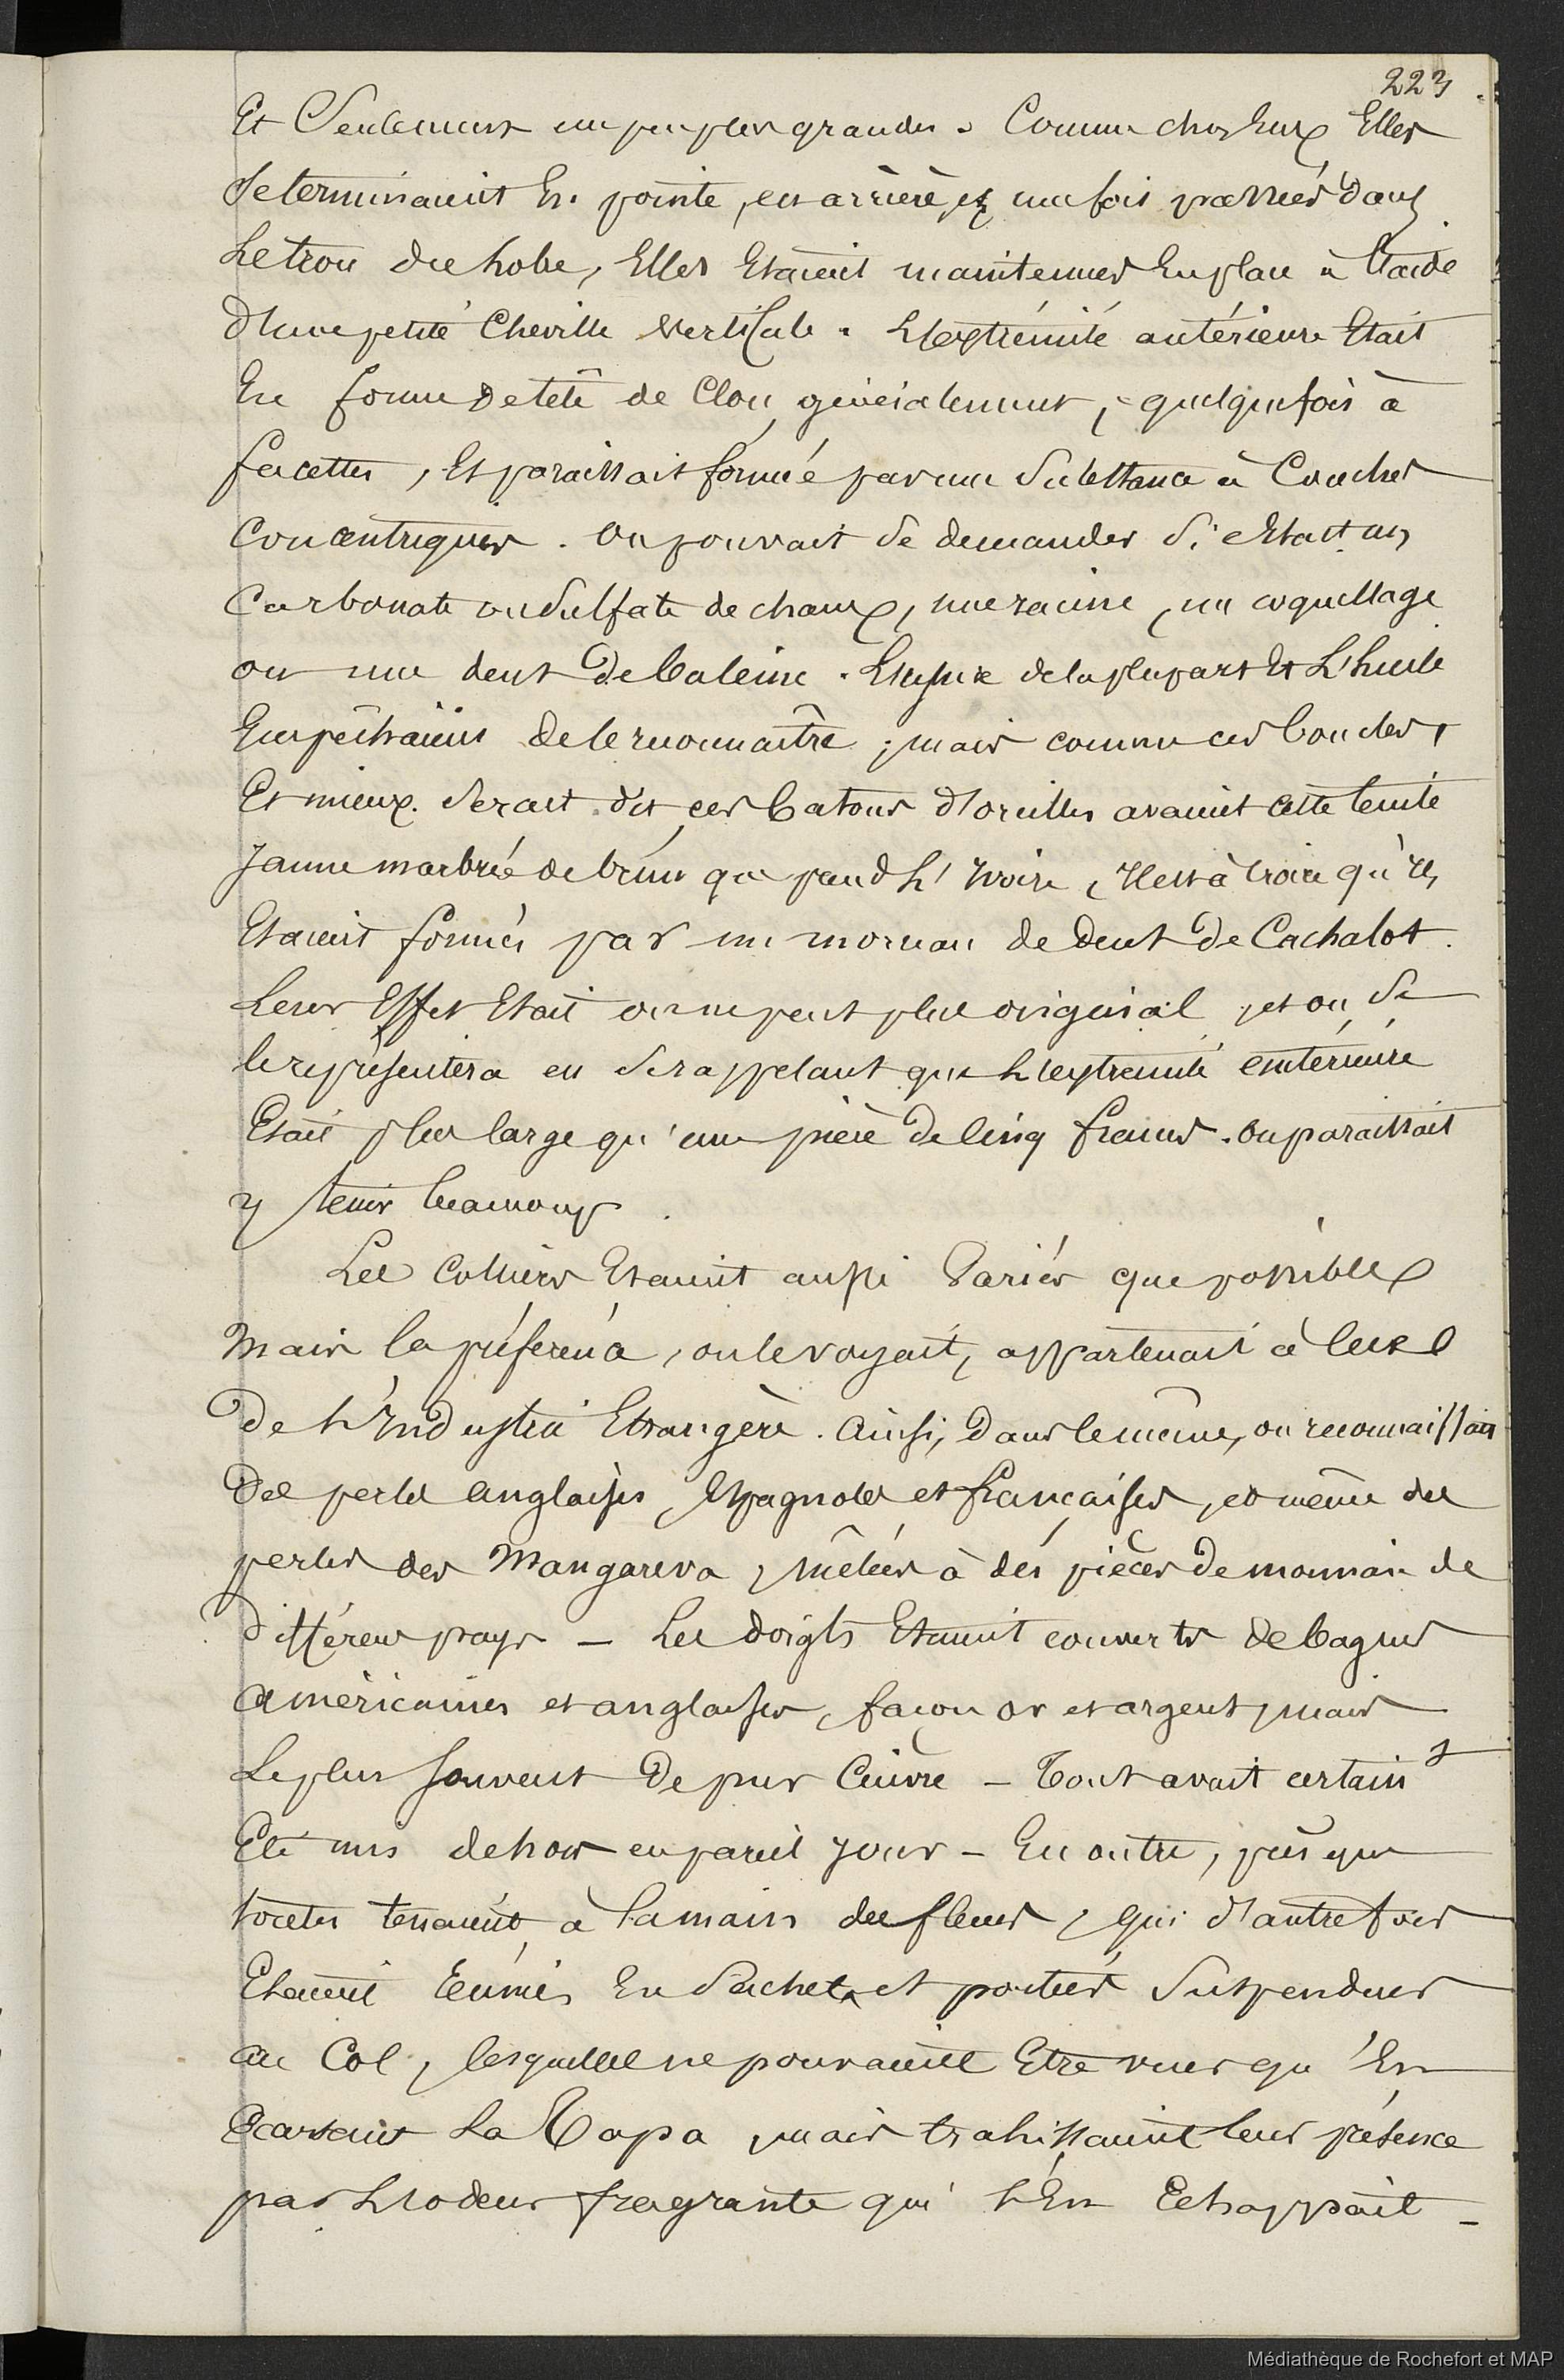 223
Et Seulement un peu plus grandes. Comme chez Eux Elles
Se terminaient En pointe, en arrière, et une fois passées dans
Le trou du Lobe, Elles Etaient maintenues En place à l'aide
d'une petite Cheville Verticale. L'extrémité antérieure Etait
En forme de tête de Clou, généralement, quelquefois à
facettes, Et paraissait formée par une Substance à Couches
Concentriques. On pouvait Se demander Si c'Etait un
Carbonate ou Sulfate de chaux, une racine, un coquillage
ou une dent De baleine. L'usure de la plupart Et L'huile
Empêchaient de le reconnaître ; mais comme ces boucles,
Et mieux Serait dit, ces batons d'oreilles avaient cette teinte
Jaune marbrée de brun que prend L'Ivoire, Il est à Croire qu'Ils
Etaient formés par un morceau de Dent De Cachalot.
Leur Effet Etait on ne peut plus original, et on Se
le représentera en Se rappelant que L'extrémité antérieure
Etait plus large qu'une pièce De Cinq francs. On paraissait
y tenir beaucoup.
Les Colliers Etaient aussi Variés que possible
Mais la préférence, on le voyait, appartenait à ceux
De L'Industrie Etrangère. Ainsi, Dans le même, on reconnaissait
Des perles anglaises, Espagnoles et françaises, et même des
perles des Mangareva, mêlées à des pièces De monnaie de
différens pays — Les doigts Etaient couverts de bagues
américaines et anglaises, façon or et argent, mais
Le plus Souvent De pur Cuivre — Tout avait certain t
Eté mis dehors en pareil jour — En outre, presque
toutes tenaient à la main des fleurs, qui d'autrefois
Etaient réunies En Sachets et portées Suspendues
au Col, lesquelles ne pouvaient Etre vues qu'En
Ecartant La Tapa, mais trahissaient leur présence
par L'odeur fragrante qui S'En Echappait —
Médiathèque de Rochefort et MAP